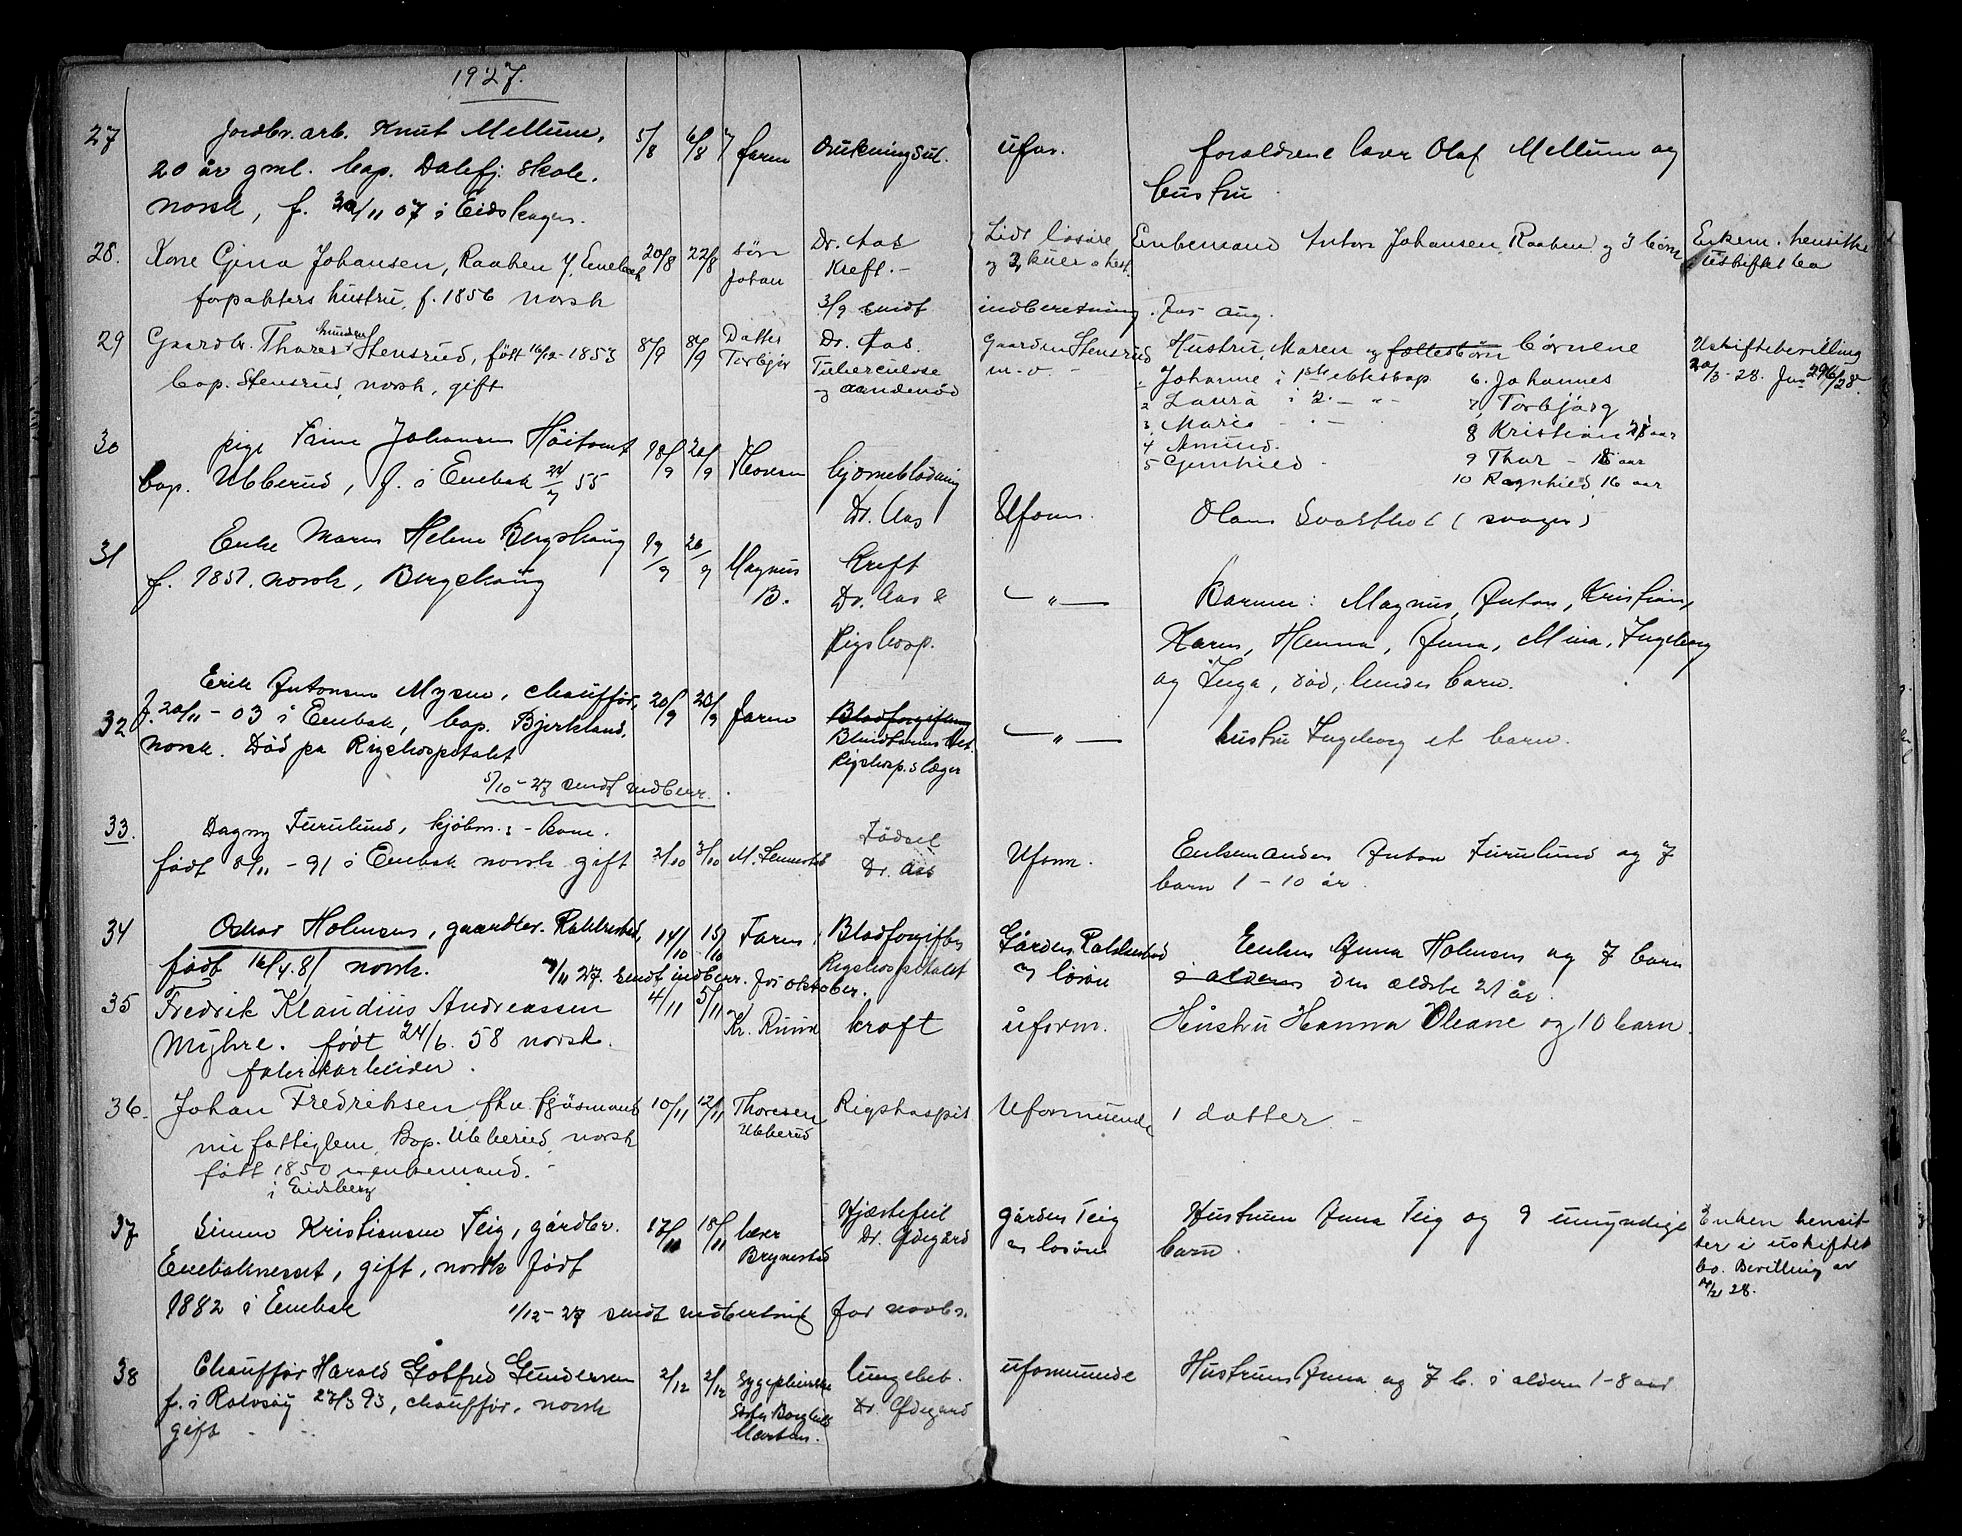 1927.
27 Jordbr. arb. Knut Mellum, 5/8 6/8 farm Drukningsul. ufor. foraldrene lærer Olaf Mellum og
20 år gml. bop. Dalefj. skole. hustru
norsk, f. 30/11 07 i Eidskogen.
28. Kone Gina Johansen, Raaken Y. Enebak 20/8 22/8 sön Johan Dr. Aas Kreft. - Lidt lösöre og 2 kuer o hest Enkemand Anton Johansen, Raaken og 3 börn Enkem. hensitter i uskiftet bo
forpakters hustru, f. 1856 norsk
3/9 sendt indberetning for aug.
29 Gaardbr. Thorer Amundsen Stensrud, födt 16/12-1853 8/9 8/9 Datter Torbjör Dr. Aas. Gaarden Stensrud Hustru, Maren og fællesbörn börnene Uskiftebevilling
bop. Stensrud, norsk, gift Tuberculose og aandenöd m. v. - 20/3 - 28. Jnr 296/28.
1. Johanne i 1ste ekteskap 6. Johannes
2 Laura i 2. — " - 7, Torbjörg
3. Marie - " - 8 Kristian 21 aar
4 Amund. 9 Thor - 18 aar
5 Gunhild. 10 Ragnhild 16 aar
30 pige Trine Johansen Höitomt 18/9 20/9 Thoresen hjerneblödning Uform. Olaus Svarthol (svoger)
bop. Ubberud, f. i Enebak 24/7 55 Dr. Aas
31 Enke Maren Helene Bergskaug 19/9 26/9 Magnus B. Kreft — " — Barna: Magnus, Anton, Kristian,
f. 1851. norsk, Bergskaug Dr. Aas & Karen, Hanna, Anna, Mina, Ingeborg
Rigshosp. og Inga, död, hendes barn.
32 Erik Antonsen Mysen, chaufför, 20/9 28/9 farm Blodforgiftning — " — hustru Ingeborg et barn.
f. 20/11 - 03 i Enebak, bop. Bjerkland,
norsk. Död på Rigshospitalet Rigshosp.s læger
5/10 - 27 sendt indberr.
33. Dagny Furulund, kjøbm.s - kone. 2/10 3/10 M. Födsel Uform. Enkemanden Anton Furulund og 7
født 8/11 - 91 i Enebak norsk gift Dr. Aas barn 1 - 10 år.
34 Oskar Holmsen, gaardbr. Rakkestad, 14/10 15/10 Farm. Blodforgiftn Gården Rakkestad Enken Anna Holmsen og 7 barn
født 16/4. 81 norsk. Rigshospitalet og lösöre i alderen den ældste 21 år.
1/11 27. sendt indberr. for oktober.
35 Fredrik Klaudius Andreassen 4/11 5/11 Kr. Ruud kræft uform. Hustru Hanna Oleane og 10 barn.
Myhre. født 24/6. 58 norsk.
fabrikarbeider.
36. Johan Fredriksen fhv. fjøsmand 10/11 12/11 Thoresen Ubberud Rigshospit Uformuende 1 datter. -
nu fattiglem, Bop. Ubberud, norsk
født 1850 enkemand.
i Eidsberg
37 Simen Kristiansen Teig, gårdbr. 17/11 18/11 lærer Brynestad Hjærtefeil Dr. Ødegård gården Teig og løsøre Hustruen Anna Teig og 9 umyndige barn. Enken hensitter i uskiftet bo. Bevilling av /2 28.
Enebakneset, gift, norsk født
1882 i Enebak 1/12 - 27 sendt indberetning for novbr.
38 Chaufför Harald Gotfred Gundersen 2/12 2/12 Sygepleierske Borghild Martens. lungebet. Dr. Ødegard uformuende Hustruen Anna og 7 b. i alderen 1-8 aar
f. i Rolvsøy 27/3 93, chaufför, norsk
gift